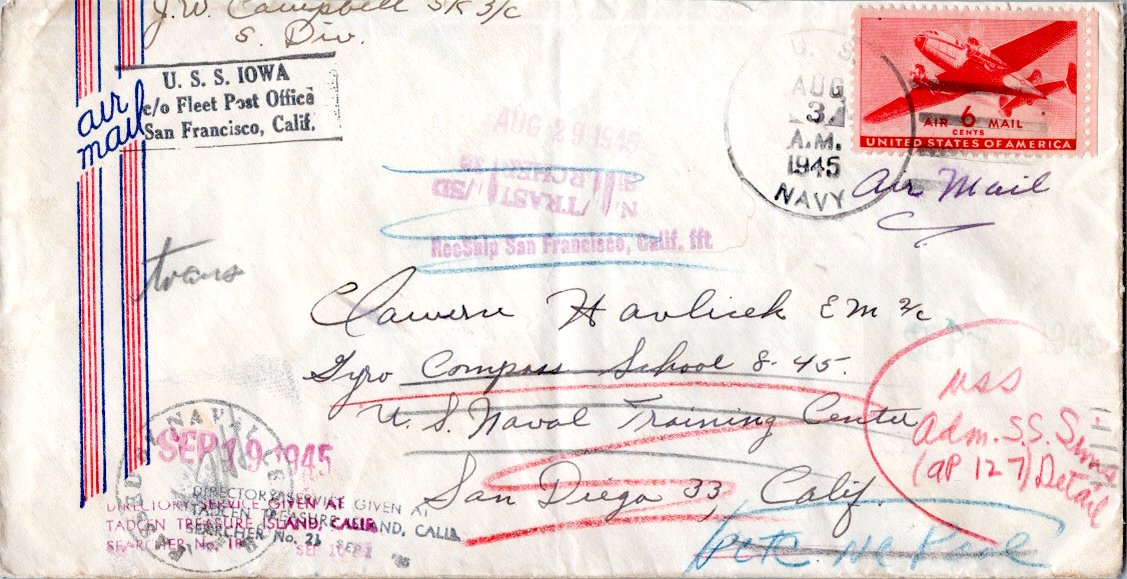 J.W. Campbell SK 3/c
S. Div.
U. S. S. IOWA
c/o Fleet Post Office
San Francisco, Calif.
air
mail
U. S.
AUG
3
A.M.
1945
NAVY
AIR 6 MAIL
CENTS
UNITED STATES OF AMERICA
Air Mail
AUG 29 1945
RecSalp San Francisco, Calif. fft
trans
Havlicek EM 2/c
Gyro Compass School 8-45.
U.S. Naval Training Center
San Diego 33, Calif.
USS
Adm. S.S. Sims
(AP 127) Detail
SEP 19 1945
DIRECTORY SERVICE GIVEN AT
TADCEN TREASURE ISLAND, CALIF.
SEARCHER No. 18
DIRECTORY SERVICE GIVEN AT
TADCEN TREASURE ISLAND, CALIF.
SEARCHER No. 21